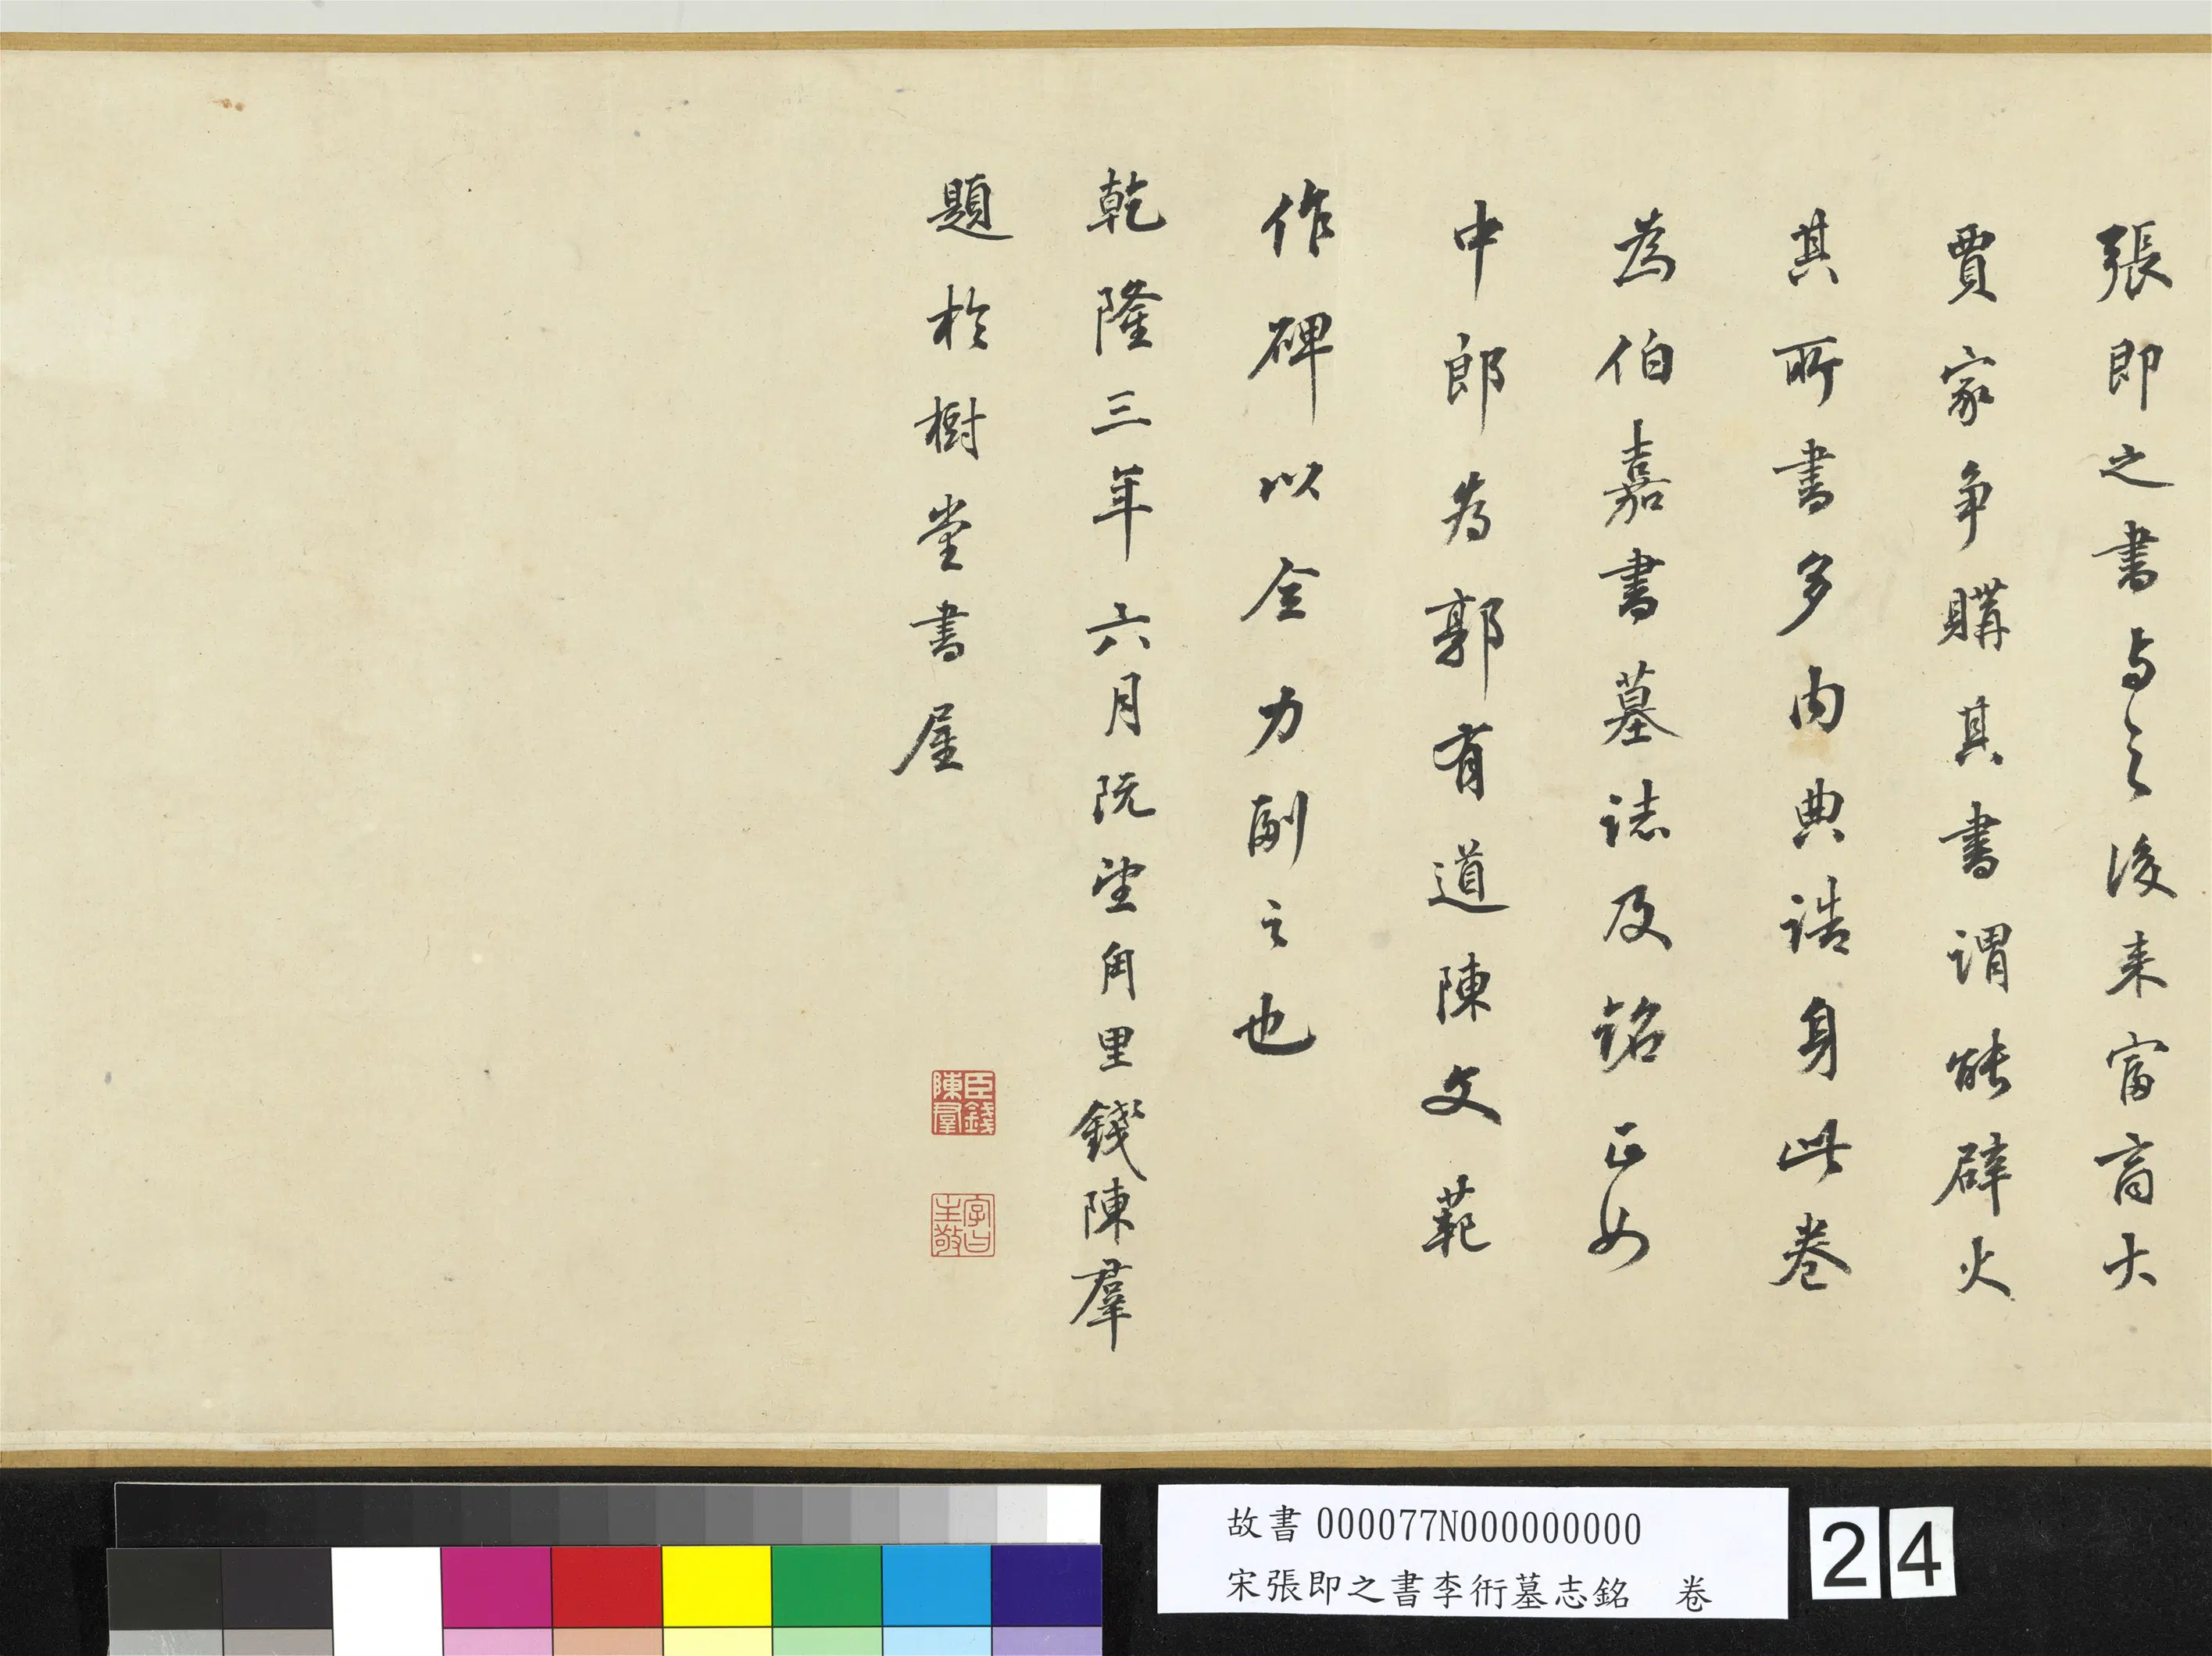 張即之書与之後来富商大
賈家争購其書謂能辟火
其所書多内典誥身此卷
為伯嘉書墓誌及銘正如
中郎為郭有道陳文範
作碑以全力副之也
乾隆三年六月既望甪里錢陳羣
題於樹堂書屋
臣錢陳羣
字曰主敬
故書 000077N000000000
宋張即之書李衎墓志銘 卷
24